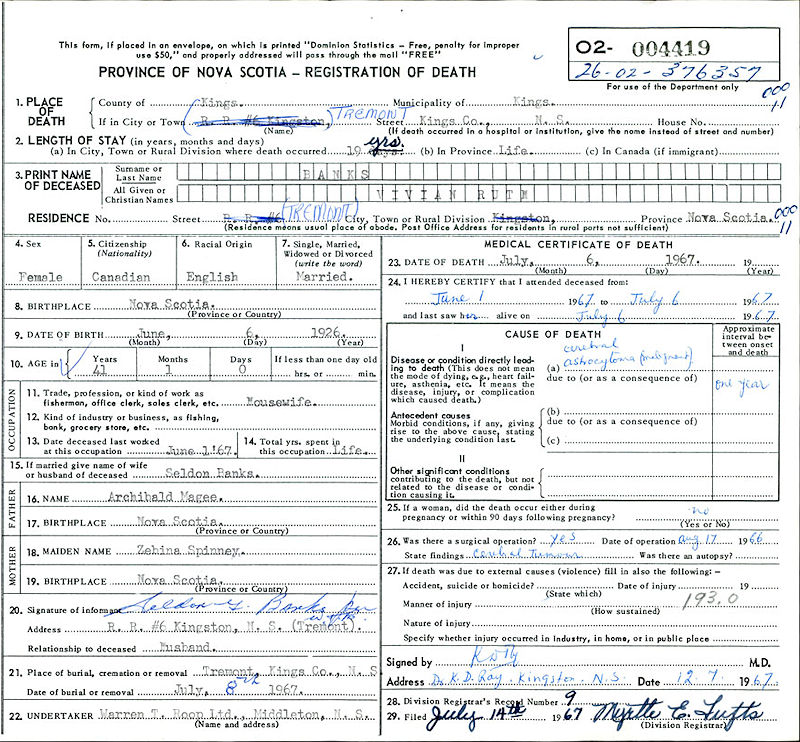 This form, if placed in an envelope, on which is printed "Dominion Statistics – Free, penalty for improper
use $50," and properly addressed will pass through the mail "FREE"
O2- 004419
26-02-376357
For use of the Department only
PROVINCE OF NOVA SCOTIA – REGISTRATION OF DEATH
000
11
1. PLACE OF DEATH
County of Kings. Municipality of Kings.
If in City or Town R. R. #6 Kingston, TREMONT Street Kings Co., N. S. House No.
(Name) (If death occurred in a hospital or institution, give the name instead of street and number)
2. LENGTH OF STAY (in years, months and days)
(a) In City, Town or Rural Division where death occurred 19 yrs. (b) In Province Life. (c) In Canada (if immigrant)
3. PRINT NAME OF DECEASED
Surname or Last Name BANKS
All Given or Christian Names VIVIAN RUTH
RESIDENCE No. Street R. R. #6 (TREMONT) City, Town or Rural Division Kingston, Province Nova Scotia.
000
11
(Residence means usual place of abode. Post Office Address for residents in rural parts not sufficient)
4. Sex
Female
5. Citizenship (Nationality)
Canadian
6. Racial Origin
English
7. Single, Married, Widowed or Divorced (write the word)
Married.
8. BIRTHPLACE Nova Scotia.
(Province or Country)
9. DATE OF BIRTH June, 6, 1926.
(Month) (Day) (Year)
10. AGE in Years Months Days If less than one day old
41 1 0 hrs. or min.
OCCUPATION
11. Trade, profession, or kind of work as
fishermon, office clerk, sales clerk, etc. Housewife.
12. Kind of industry or business, as fishing,
bank, grocery store, etc.
13. Date deceased last worked
at this occupation June 1'67.
14. Total yrs. spent in
this occupation Life.
15. If married give name of wife
or husband of deceased Seldon Banks.
FATHER
16. NAME Archibald Magee.
17. BIRTHPLACE Nova Scotia.
(Province or Country)
MOTHER
18. MAIDEN NAME Zebina Spinney.
19. BIRTHPLACE Nova Scotia.
(Province or Country)
20. Signature of informant Seldon G. Banks
Address R. R. #6 Kingston, N. S. (Tremont).
Relationship to deceased Husband.
21. Place of burial, cremation or removal Tremont, Kings Co., N. S
Date of burial or removal July, 8th 1967.
22. UNDERTAKER Warren T. Roop Ltd., Middleton, N. S.
(Name and address)
MEDICAL CERTIFICATE OF DEATH
23. DATE OF DEATH July, 6, 1967. 19
(Month) (Day) (Year)
24. I HEREBY CERTIFY that I attended deceased from:
June 1 1967 to July 6 1967
and last saw her alive on July 6 1967
CAUSE OF DEATH
Approximate interval between onset and death
I
Disease or condition directly leading to death (This does not mean the mode of dying, e.g., heart failure, asthenia, etc. It means the disease, injury, or complication which caused death.)
(a) cerebral astrocytoma (malignant)
one year
due to (or as a consequence of)
Antecedent causes
Morbid conditions, if any, giving rise to the above cause, stating the underlying condition last.
(b)
due to (or as a consequence of)
(c)
II
Other significant conditions
contributing to the death, but not related to the disease or condition causing it.
25. If a woman, did the death occur either during
pregnancy or within 90 days following pregnancy? no
(Yes or No)
26. Was there a surgical operation? yes Date of operation Aug 17 1966
State findings Cerebral Tumour Was there an autopsy?
27. If death was due to external causes (violence) fill in also the following: –
Accident, suicide or homicide? Date of injury 19
(State which)
Manner of injury 193.0
(How sustained)
Nature of injury
Specify whether injury occurred in industry, in home, or in public place
Signed by M.D.
Address Dr. K. D. Ray. Kingston. N. S. Date 12. 7. 1967
28. Division Registrar's Record Number 9
29. Filed July 14th 1967 Myrtle E. Tufts
(Division Registrar)